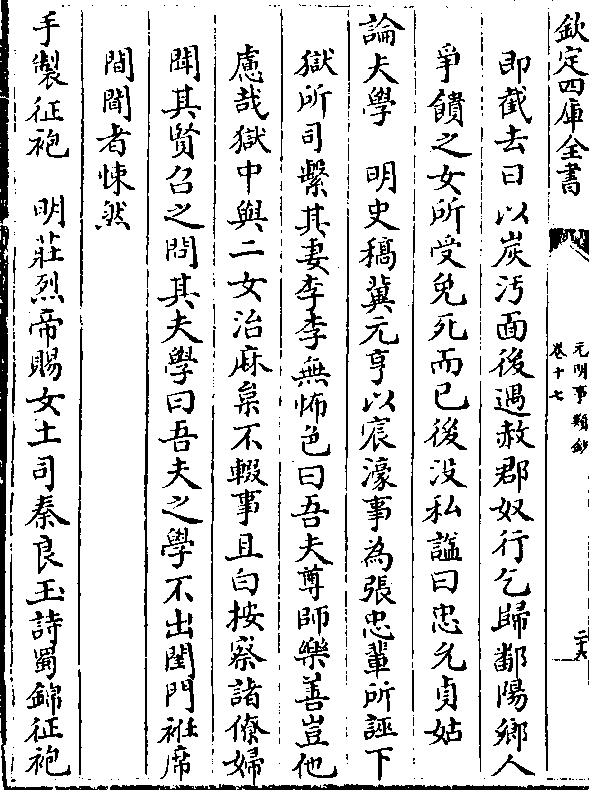 欽定四庫全書
元明事類鈔
卷十七
二六
即截去曰以炭汚面後遇赦郡奴行乞歸鄱陽鄉人
爭饋之女所受免死而已後没私謚曰忠允貞姑
論夫學　明史稿冀元亨以宸濠事為張忠輩所誣下
獄所司繫其妻李李無怖色曰吾夫尊師樂善豈他
慮哉獄中與二女治麻枲不輟事且白按察諸僚婦
聞其賢召之問其夫學曰吾夫之學不出閨門袵席
間聞者悚然
手製征袍　明莊烈帝賜女土司秦良玉詩蜀錦征袍